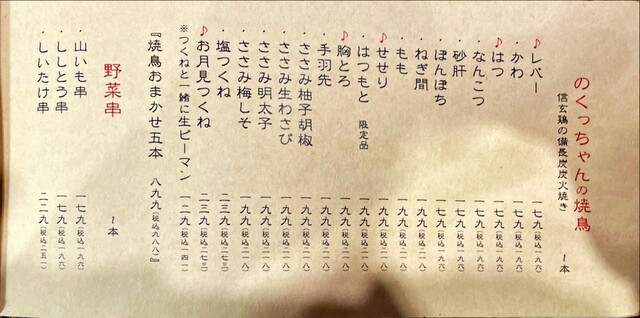 のくっちゃんの焼鳥
信玄鶏の備長炭炭火焼き 1本
♪レバー 一七九(税込一九六)
・かわ 一七九(税込一九六)
♪はつ 一七九(税込一九六)
・なんこつ 一七九(税込一九六)
・砂肝 一七九(税込一九六)
・ぼんぼち 一七九(税込一九六)
・ねぎ間 一九九(税込二一八)
・もも 一九九(税込二一八)
♪せせり 一九九(税込二一八)
・はつもと 限定品 一九九(税込二一八)
♪胸とろ 一九九(税込二一八)
・手羽先 一九九(税込二一八)
・ささみ柚子胡椒 一九九(税込二一八)
・ささみ生わさび 一九九(税込二一八)
・ささみ明太子 一九九(税込二一八)
・ささみ梅しそ 一九九(税込二一八)
・塩つくね 二三九(税込二六二)
♪お月見つくね 二三九(税込二六二)
※つくねと一緒に生ピーマン 一二九(税込一四一)
『焼鳥おまかせ五本 八九九(税込九八八)』
野菜串 1本
・山いも串 一七九(税込一九六)
・ししとう串 一七九(税込一九六)
・しいたけ串 二二九(税込二五一)